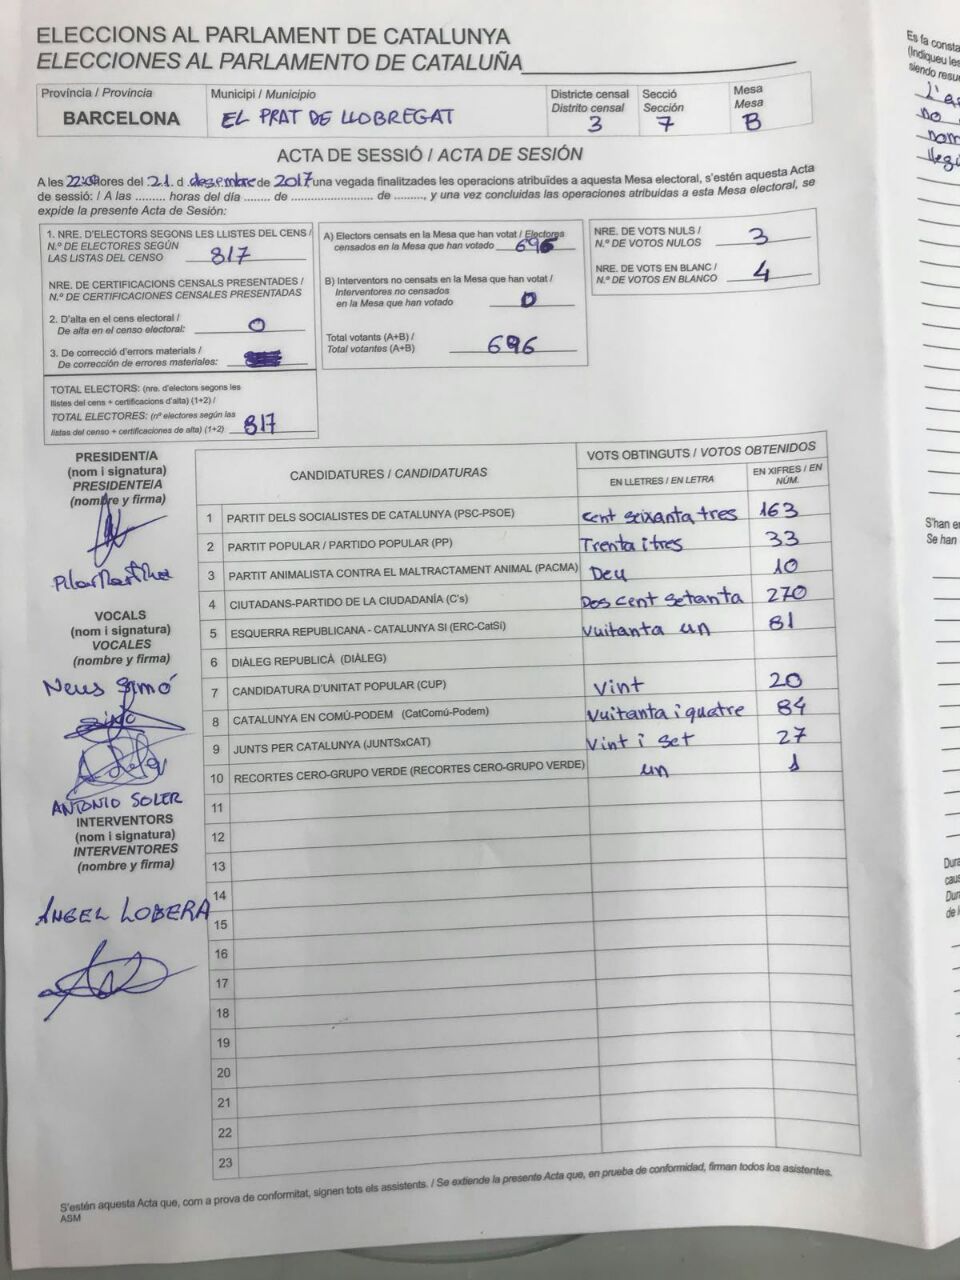 ELECCIONS AL PARLAMENT DE CATALUNYA
ELECCIONES AL PARLAMENTO DE CATALUÑA
Província / Provincia
BARCELONA
Municipi / Municipio
EL PRAT DE LLOBREGAT
Districte censal
Distrito censal
3
Secció
Sección
7
Mesa
Mesa
B
ACTA DE SESSIÓ / ACTA DE SESIÓN
A les 22:00 hores del 21. d desembre de 2017 una vegada finalitzades les operacions atribuïdes a aquesta Mesa electoral, s'estén aquesta Acta
de sessió: / A las ......... horas del día ........ de ........................... de ........, y una vez concluidas las operaciones atribuidas a esta Mesa electoral, se
expide la presente Acta de Sesión:
1. NRE. D'ELECTORS SEGONS LES LLISTES DEL CENS /
N.º DE ELECTORES SEGÚN
LAS LISTAS DEL CENSO 817
NRE. DE CERTIFICACIONS CENSALS PRESENTADES /
N.º DE CERTIFICACIONES CENSALES PRESENTADAS
2. D'alta en el cens electoral /
De alta en el censo electoral: 0
3. De correcció d'errors materials /
De corrección de errores materiales:
TOTAL ELECTORS: (nre. d'electors segons les
llistes del cens + certificacions d'alta) (1+2) /
TOTAL ELECTORES: (nº electores según las
listas del censo + certificaciones de alta) (1+2) 817
A) Electors censats en la Mesa que han votat / Electores
censados en la Mesa que han votado 696
B) Interventors no censats en la Mesa que han votat /
Interventores no censados
en la Mesa que han votado 0
Total votants (A+B) /
Total votantes (A+B) 696
NRE. DE VOTS NULS /
N.º DE VOTOS NULOS 3
NRE. DE VOTS EN BLANC /
N.º DE VOTOS EN BLANCO 4
PRESIDENT/A
(nom i signatura)
PRESIDENTE/A
(nombre y firma)
Pilar Martínez
VOCALS
(nom i signatura)
VOCALES
(nombre y firma)
Neus Simó
ANTONIO SOLER
INTERVENTORS
(nom i signatura)
INTERVENTORES
(nombre y firma)
ÀNGEL LOBERA
CANDIDATURES / CANDIDATURAS
VOTS OBTINGUTS / VOTOS OBTENIDOS
EN LLETRES / EN LETRA
EN XIFRES / EN
NÚM.
1 PARTIT DELS SOCIALISTES DE CATALUNYA (PSC-PSOE) cent seixanta tres 163
2 PARTIT POPULAR / PARTIDO POPULAR (PP) Trenta i tres 33
3 PARTIT ANIMALISTA CONTRA EL MALTRACTAMENT ANIMAL (PACMA) Deu 10
4 CIUTADANS-PARTIDO DE LA CIUDADANÍA (C's) Dos cent setanta 270
5 ESQUERRA REPUBLICANA - CATALUNYA SI (ERC-CatSí) Vuitanta un 81
6 DIÀLEG REPUBLICÀ (DIÀLEG)
7 CANDIDATURA D'UNITAT POPULAR (CUP) Vint 20
8 CATALUNYA EN COMÚ-PODEM (CatComú-Podem) Vuitanta i quatre 84
9 JUNTS PER CATALUNYA (JUNTSxCAT) Vint i set 27
10 RECORTES CERO-GRUPO VERDE (RECORTES CERO-GRUPO VERDE) un 1
11
12
13
14
15
16
17
18
19
20
21
22
23
S'estén aquesta Acta que, com a prova de conformitat, signen tots els assistents. / Se extiende la presente Acta que, en prueba de conformidad, firman todos los asistentes.
ASM
Es fa consta
(Indiqueu les
siendo resue
no
S'han
Se han
Dura
Dura
de